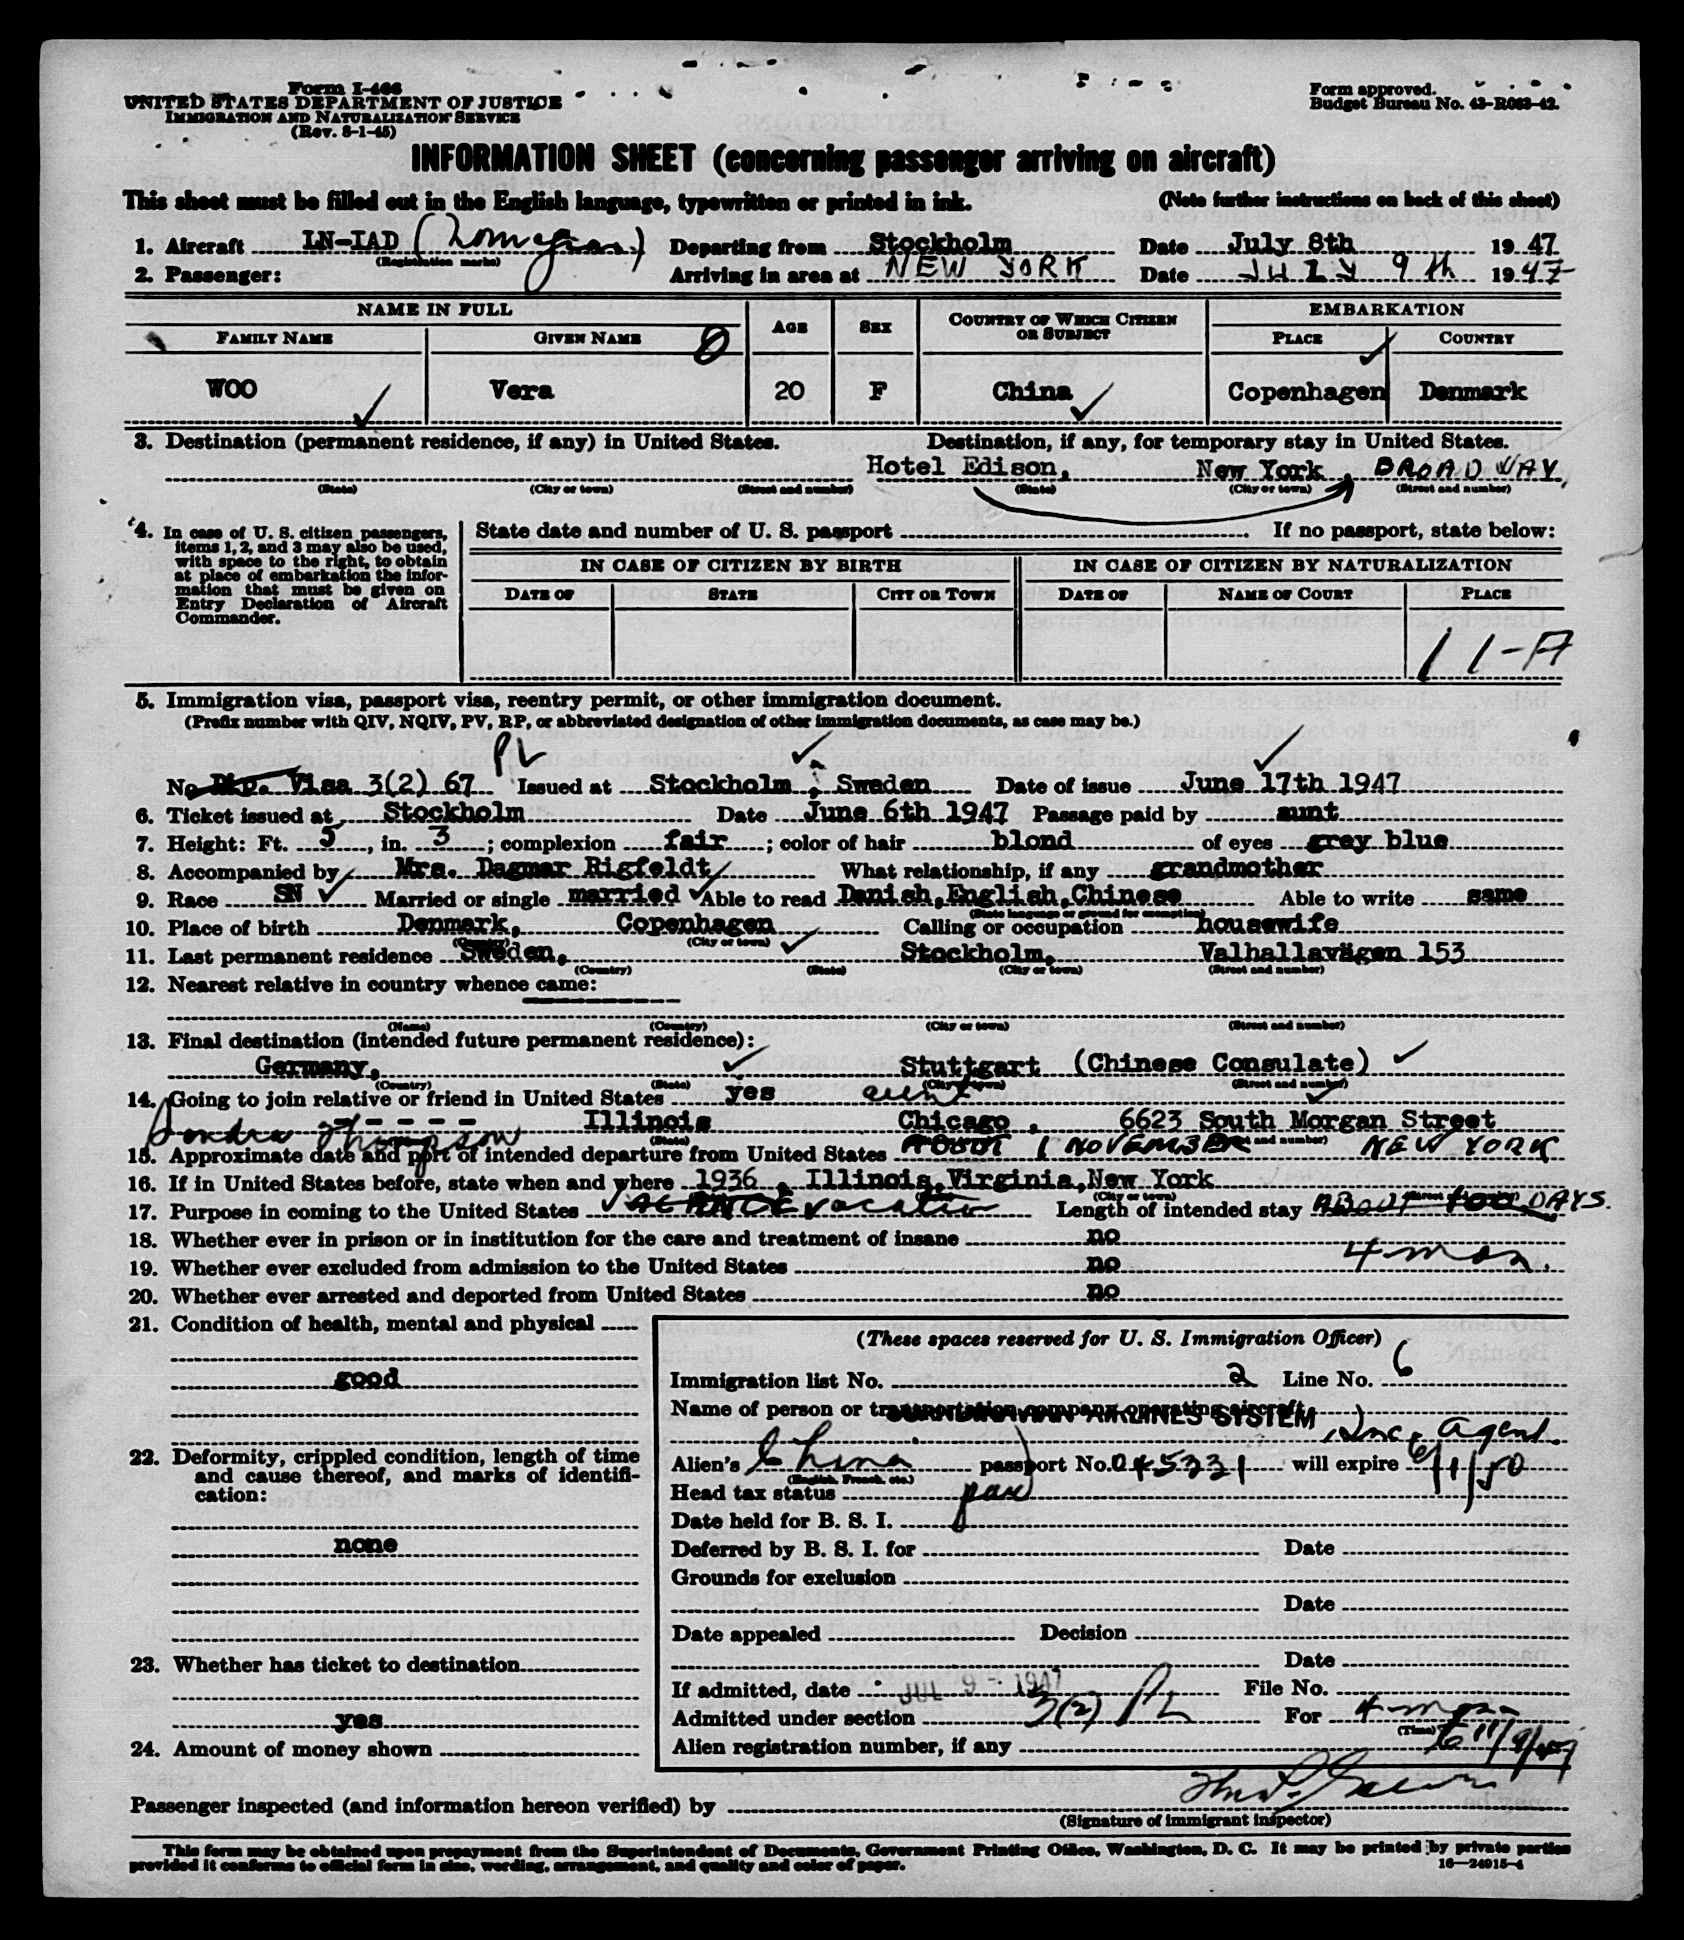 Form I-466
UNITED STATES DEPARTMENT OF JUSTICE
IMMIGRATION AND NATURALIZATION SERVICE
(Rev. 8-1-45)
Form approved.
Budget Bureau No. 43-R063-42.
INFORMATION SHEET (concerning passenger arriving on aircraft)
This sheet must be filled out in the English language, typewritten or printed in ink. (Note further instructions on back of this sheet)
1. Aircraft LN-IAD (Norwegian) Departing from Stockholm Date July 8th 19 47
(Registration marks)
2. Passenger: Arriving in area at NEW YORK Date JULY 9th 1947
NAME IN FULL AGE SEX COUNTRY OF WHICH CITIZEN OR SUBJECT EMBARKATION
FAMILY NAME GIVEN NAME PLACE COUNTRY
WOO Vera 20 F China Copenhagen Denmark
3. Destination (permanent residence, if any) in United States. Destination, if any, for temporary stay in United States.
Hotel Edison, New York, BROADWAY
(State) (City or town) (Street and number) (State) (City or town) (Street and number)
4. In case of U. S. citizen passengers, items 1, 2, and 3 may also be used, with space to the right, to obtain at place of embarkation the information that must be given on Entry Declaration of Aircraft Commander.
State date and number of U. S. passport If no passport, state below:
IN CASE OF CITIZEN BY BIRTH IN CASE OF CITIZEN BY NATURALIZATION
DATE OF STATE CITY OR TOWN DATE OF NAME OF COURT PLACE
11-A
5. Immigration visa, passport visa, reentry permit, or other immigration document.
(Prefix number with QIV, NQIV, PV, RP, or abbreviated designation of other immigration documents, as case may be.)
PV
No Dip. Visa 3(2) 67 Issued at Stockholm, Sweden Date of issue June 17th 1947
6. Ticket issued at Stockholm Date June 6th 1947 Passage paid by aunt
7. Height: Ft. 5, in. 3; complexion fair; color of hair blond of eyes grey blue
8. Accompanied by Mrs. Dagmar Rigfeldt What relationship, if any grandmother
9. Race SN Married or single married Able to read Danish,English,Chinese Able to write same
(State language or ground for exemption)
10. Place of birth Denmark, Copenhagen Calling or occupation housewife
(Country) (City or town)
11. Last permanent residence Sweden, Stockholm, Valhallavägen 153
(Country) (State) (City or town) (Street and number)
12. Nearest relative in country whence came:
(Name) (Country) (City or town) (Street and number)
13. Final destination (intended future permanent residence):
Germany, Stuttgart (Chinese Consulate)
(Country) (State) (City or town) (Street and number)
14. Going to join relative or friend in United States yes aunt
Sondra Thompson Illinois Chicago, 6623 South Morgan Street
(State) (Street and number)
15. Approximate date and port of intended departure from United States ABOUT 1 NOVEMBER NEW YORK
16. If in United States before, state when and where 1936, Illinois,Virginia,New York
(City or town)
17. Purpose in coming to the United States VACANCE vacation Length of intended stay ABOUT 100 DAYS.
18. Whether ever in prison or in institution for the care and treatment of insane no
4 mon.
19. Whether ever excluded from admission to the United States no
20. Whether ever arrested and deported from United States no
21. Condition of health, mental and physical
good
22. Deformity, crippled condition, length of time and cause thereof, and marks of identification:
none
23. Whether has ticket to destination
yes
24. Amount of money shown
(These spaces reserved for U. S. Immigration Officer)
Immigration list No. 2 Line No. 6
Name of person or transportation company operating aircraft
SCANDINAVIAN AIRLINES SYSTEM Inc. Agent.
Alien's China passport No. 045331 will expire 6/1/50
(English, French, etc.)
Head tax status
Date held for B. S. I.
Deferred by B. S. I. for Date
Grounds for exclusion
Date
Date appealed Decision
Date
If admitted, date JUL 9 - 1947 File No.
Admitted under section 3(2) PL For 4 mos
(Time)
Alien registration number, if any
Passenger inspected (and information hereon verified) by
(Signature of immigrant inspector)
This form may be obtained upon prepayment from the Superintendent of Documents, Government Printing Office, Washington, D. C. It may be printed by private parties
provided it conforms to official form in size, wording, arrangement, and quality and color of paper. 16—24915-4